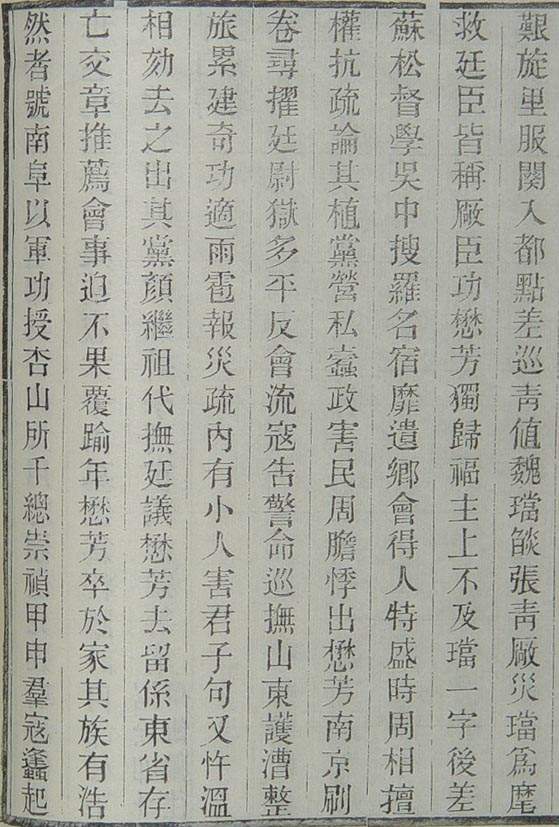 艱旋里服闋入都點差巡青值魏璫燄張青廠災璫爲麾
救廷臣皆稱廠臣功懋芳獨歸福主上不及璫一字後差
蘇松督學吳中搜羅名宿靡遺鄉會得人特盛時周相擅
權抗疏論其植黨營私蠹政害民周膽悸出懋芳南京刷
卷尋擢廷尉獄多平反會流寇告警命巡撫山東護漕整
旅累建奇功適雨雹報災疏內有小人害君子句又忤溫
相劾去之出其黨顏繼祖代撫廷議懋芳去留係東省存
亡交章推薦會事迫不果覆踰年懋芳卒於家其族有浩
然者號南阜以軍功授杏山所千總崇禎甲申羣寇蠭起